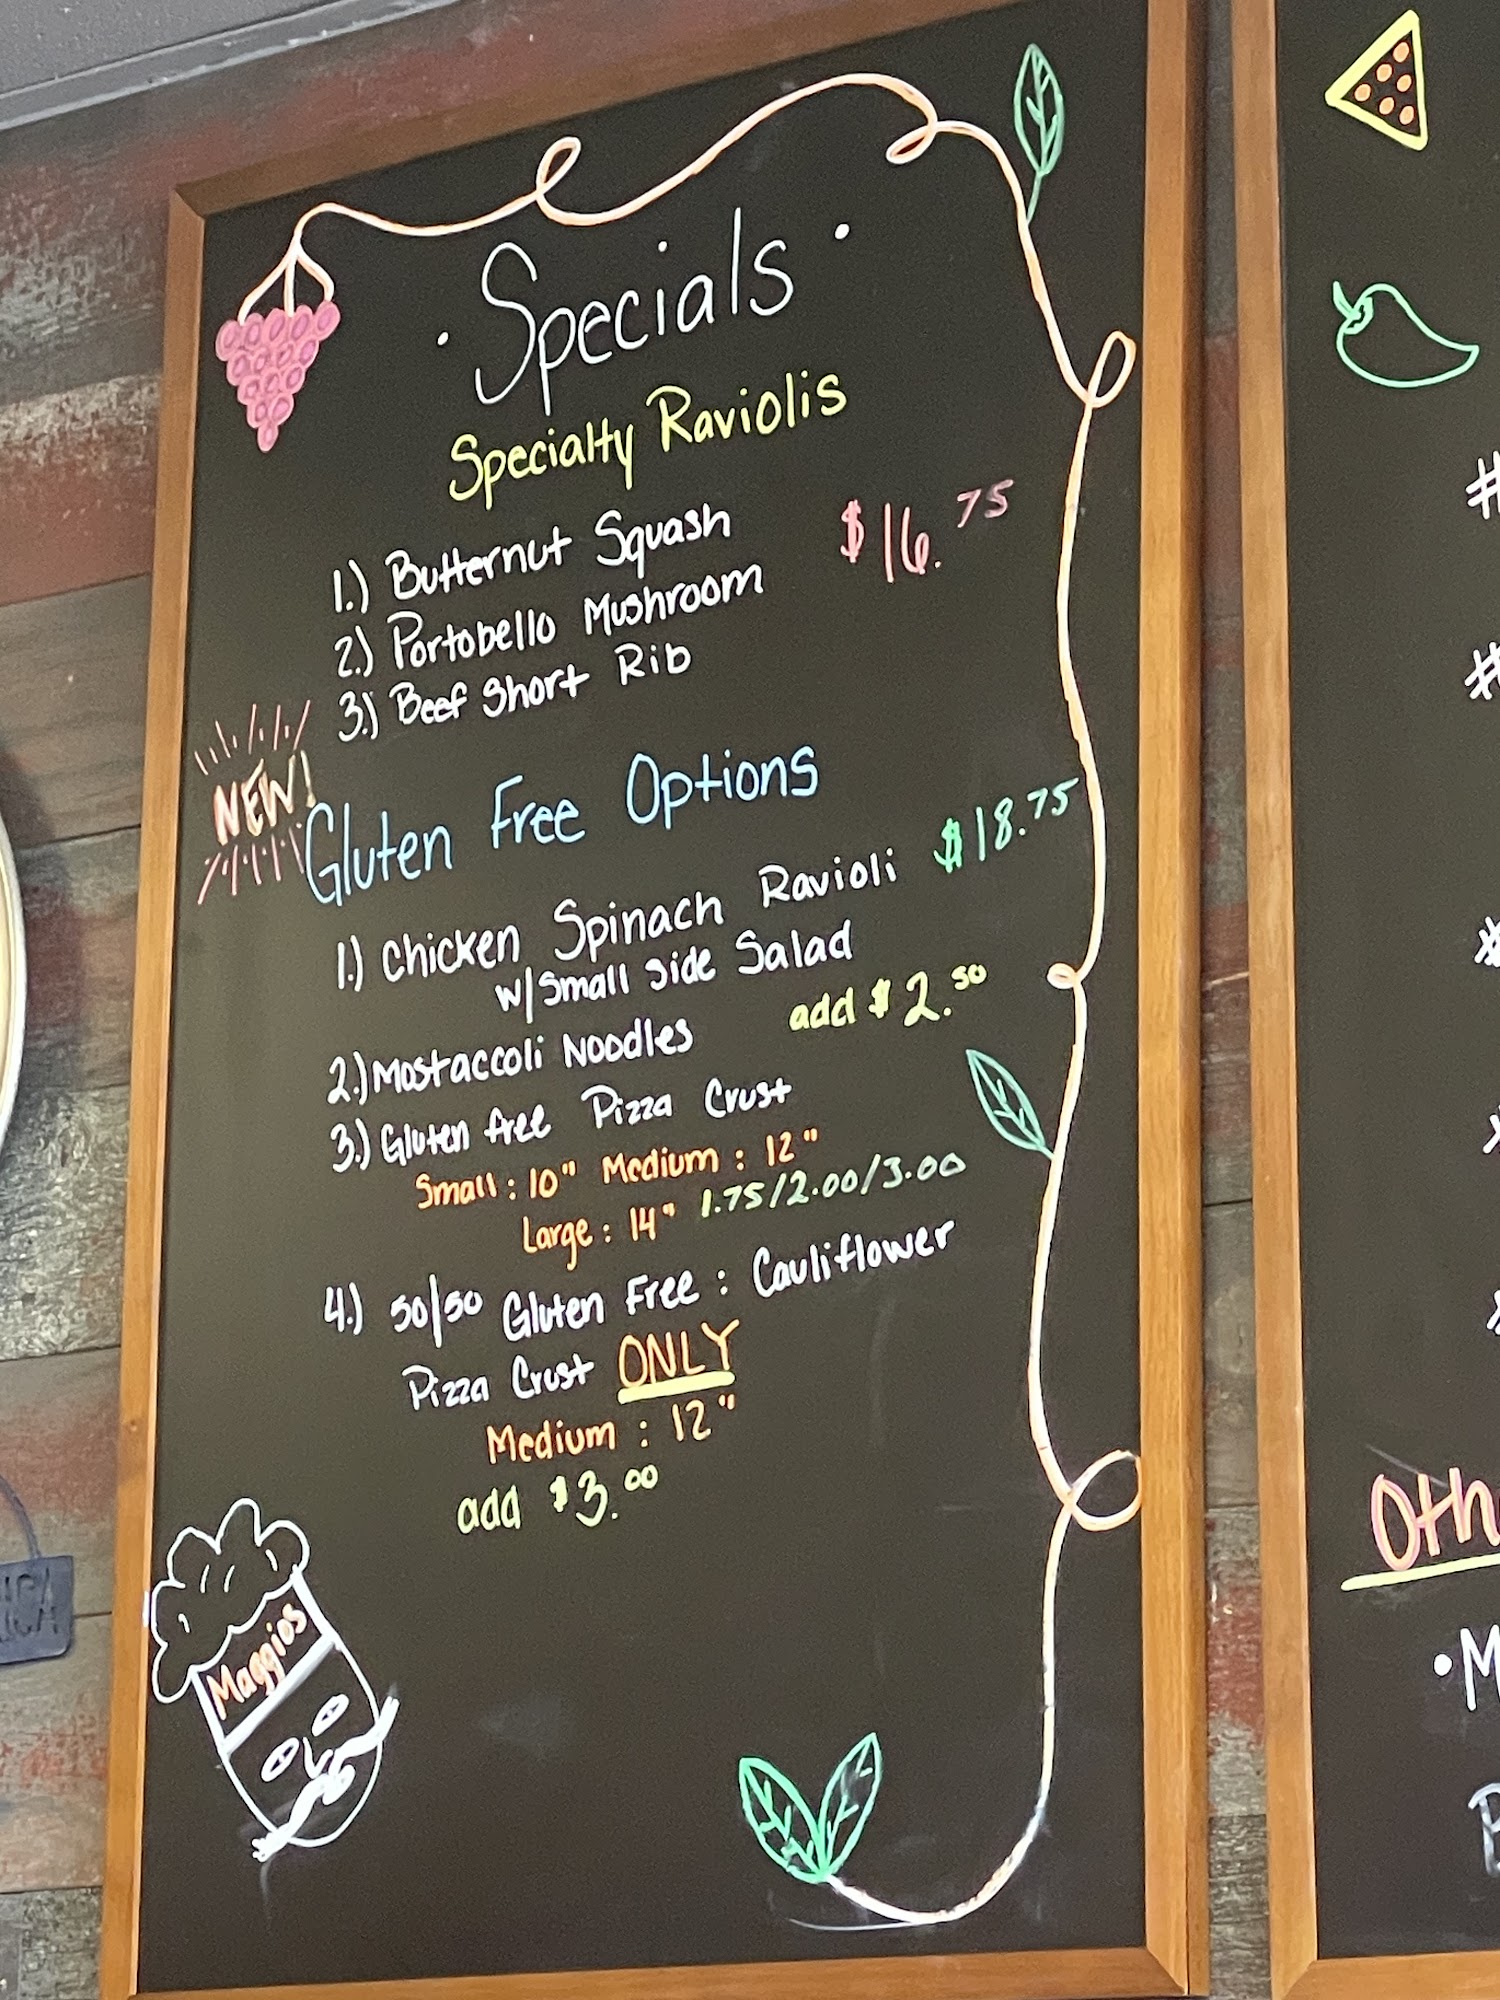 Specials
Specialty Raviolis
1.) Butternut Squash $16.75
2.) Portobello Mushroom
3.) Beef Short Rib
NEW!
Gluten Free Options
1.) Chicken Spinach Ravioli $18.75
w/small side Salad
2.) Mostaccoli Noodles add $2.50
3.) Gluten free Pizza Crust
Small: 10" Medium: 12"
Large: 14" 1.75/2.00/3.00
4.) 50/50 Gluten Free: Cauliflower
Pizza Crust ONLY
Medium: 12"
add $3.00
Maggios